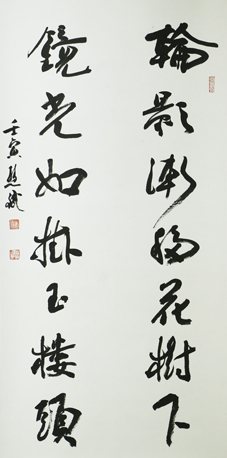 輪影漸移花樹下
鏡光如掛玉樓頭
壬寅